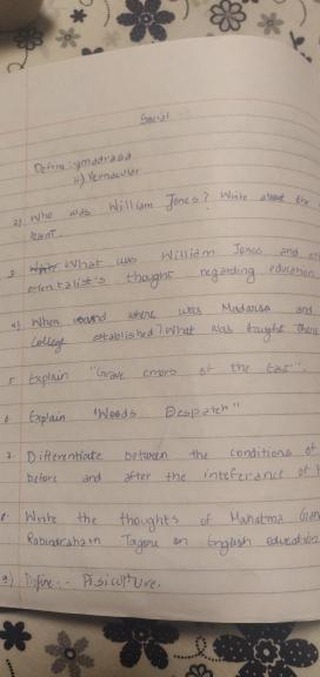 Social
Define : i) madrasa
ii) Vernacular
2) Who was William Jones? Write about the
3 What was William Jones and
orientalist's thought regarding education
4) When and where was Madarsa and
College established? What was taught there
5. Explain "Grave errors of the East".
6 Explain "Woods Despatch"
7. Differentiate between the conditions of
before and after the inteferance of
8. Write the thoughts of Mahatma Gan
Rabindrahain Tagou on English education
9) Define :- Pisiculture.